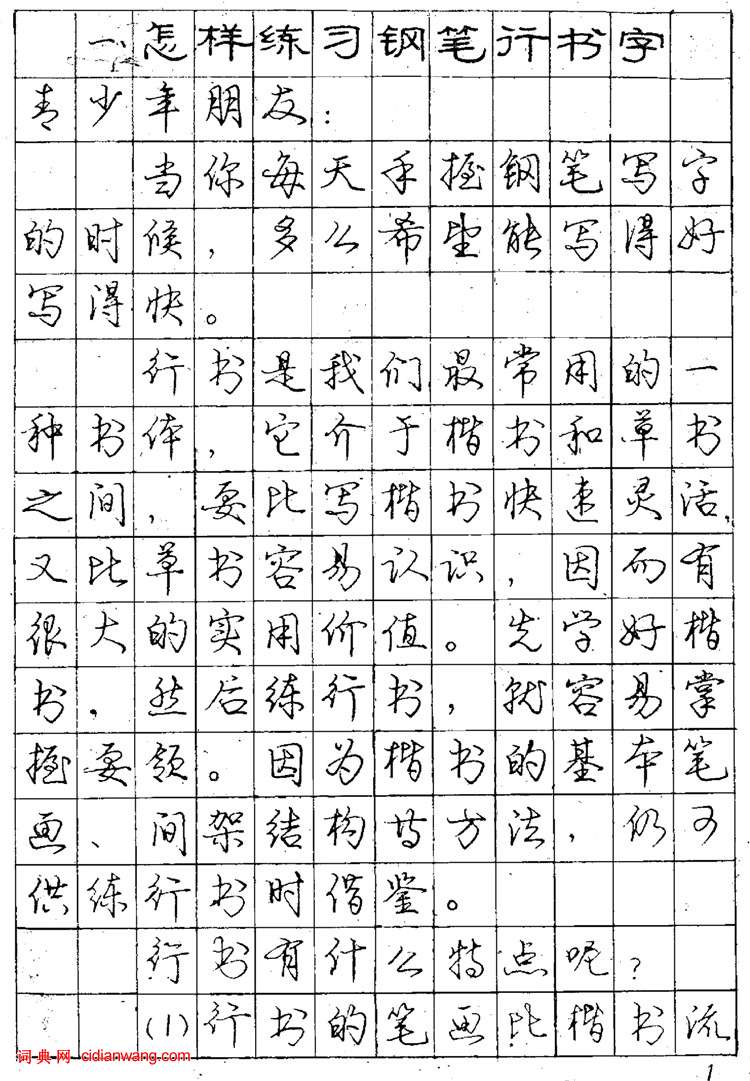 一、怎样练习钢笔行书字
青少年朋友：
当你每天手握钢笔写字
的时候，多么希望能写得好
写得快。
行书是我们最常用的一
种书体，它介于楷书和草书
之间，要比写楷书快速灵活，
又比草书容易认识，因而有
很大的实用价值。先学好楷
书，然后练行书，就容易掌
握要领。因为楷书的基本笔
画、间架结构等方法，仍可
供练行书时借鉴。
行书有什么特点呢？
(1)行书的笔画比楷书流
词典网 cidianwang.com
1